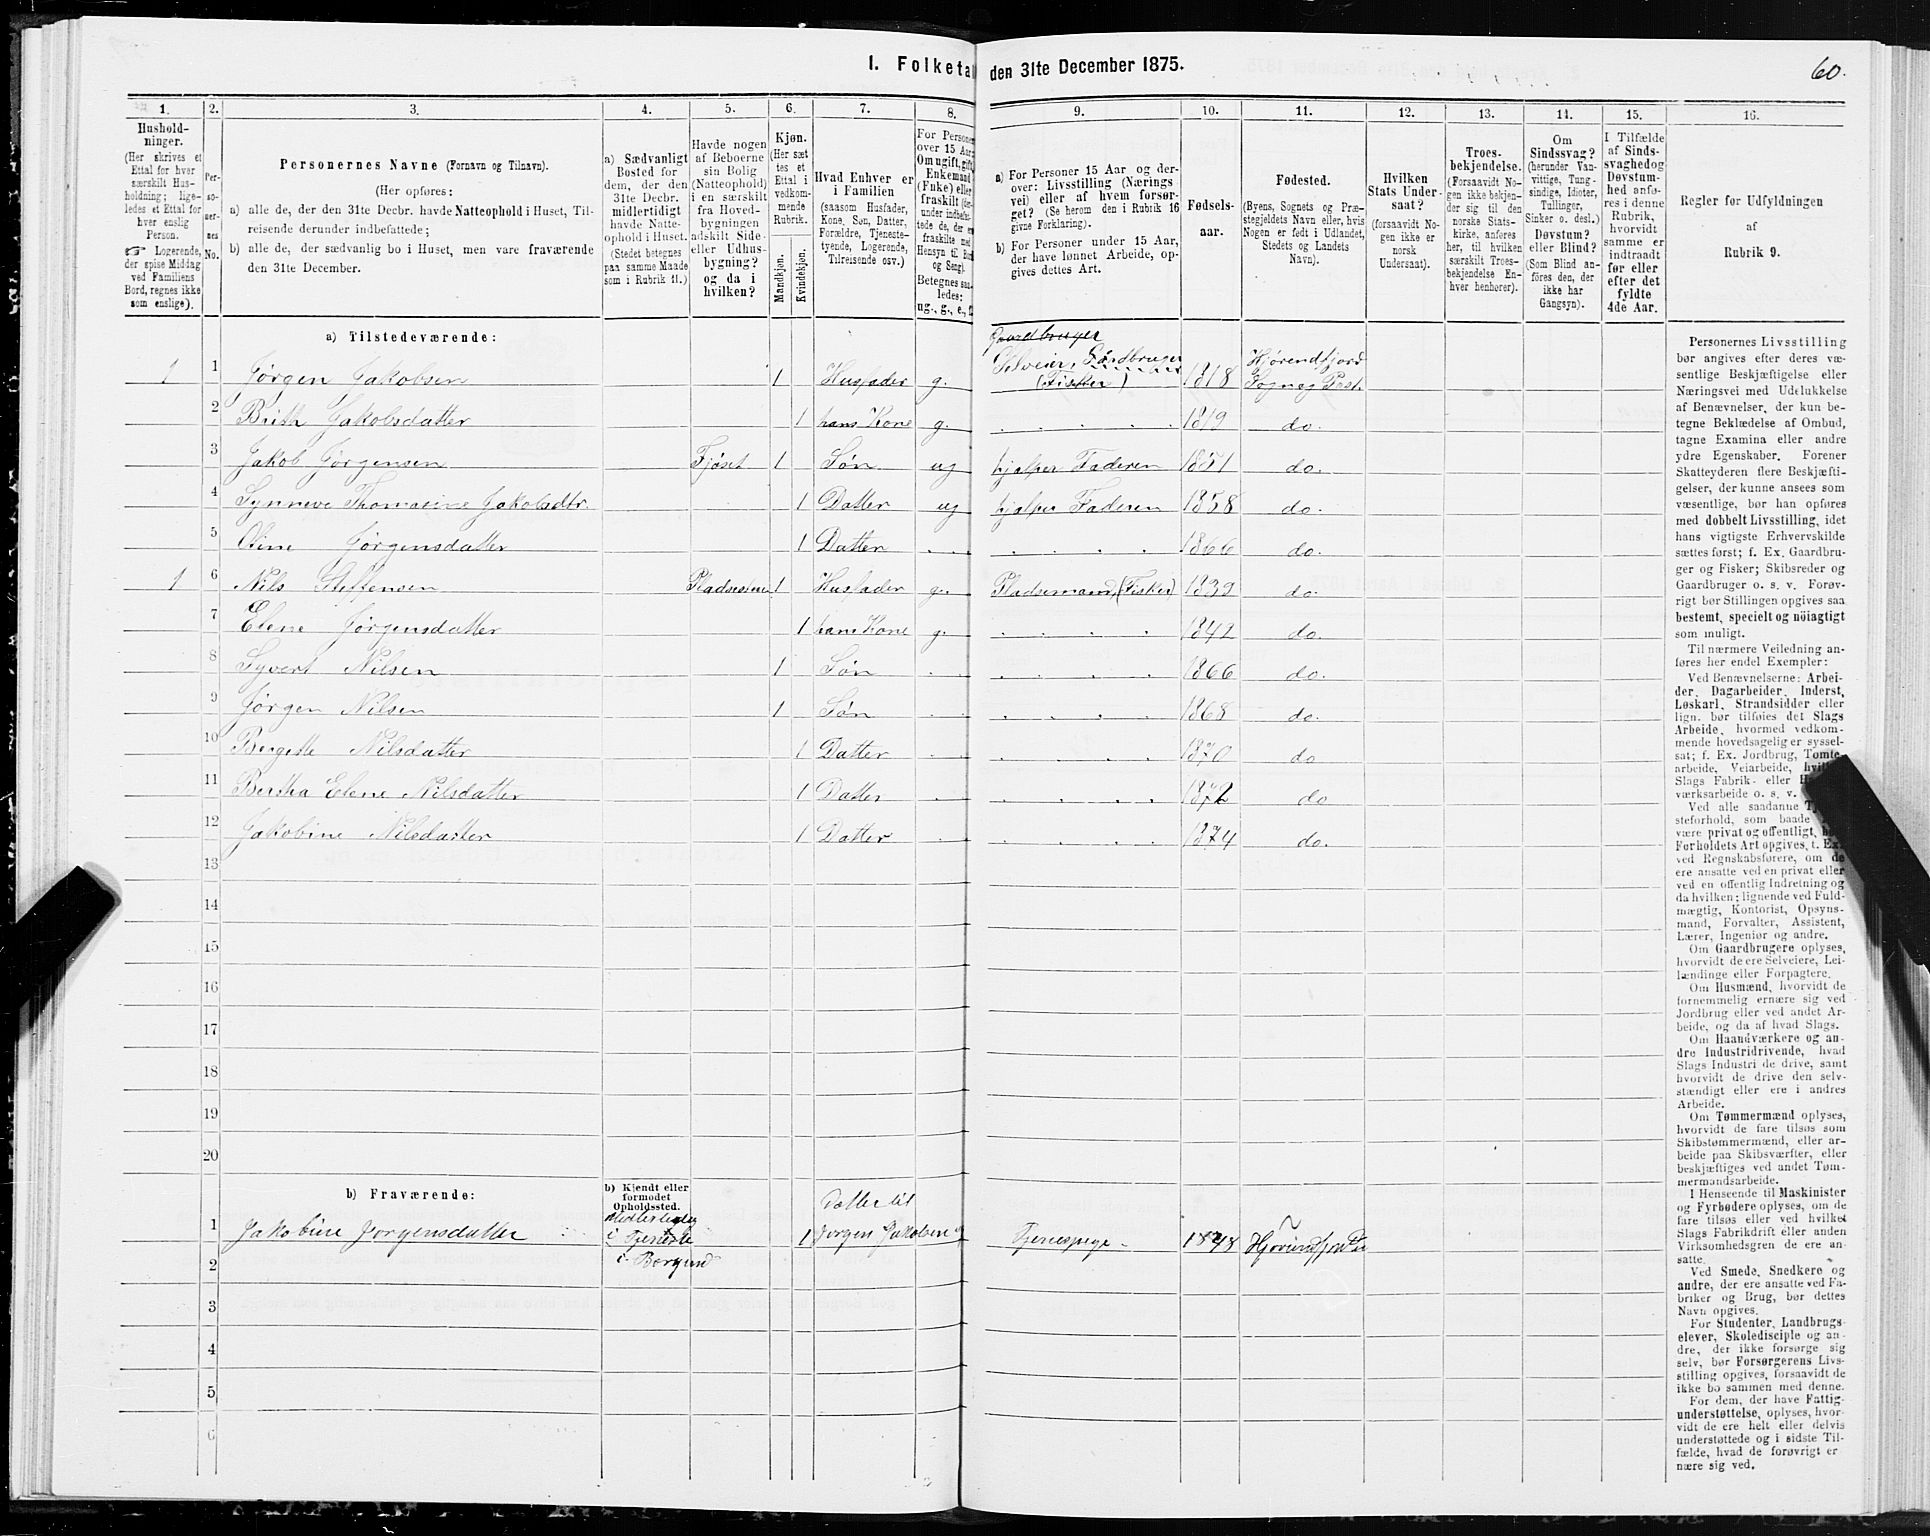 I. Folketal den 31te December 1875.
60.
1. 2. 3. 4. 5. 6. 7. 8. 9. 10. 11. 12. 13. 14. 15. 16.
Hushold-
ninger.
(Her skrives et
Ettal for hver
særskilt Hus-
holdning; lige-
ledes et Ettal for
hver enslig
Person.
☞ Logerende,
der spise Middag
ved Familiens
Bord, regnes ikke
som enslige).
Per-
so-
ner-
nes
No.
Personernes Navne (Fornavn og Tilnavn).
(Her opføres:
a) alle de, der den 31te Decbr. havde Natteophold i Huset, Til-
reisende derunder indbefattede;
b) alle de, der sædvanlig bo i Huset, men vare fraværende
den 31te December.
a) Sædvanligt
Bosted for
dem, der den
31te Decbr.
midlertidigt
havde Natte-
ophold i Huset.
(Stedet betegnes
paa samme Maade
som i Rubrik 11.)
Havde nogen
af Beboerne
sin Bolig
(Natteophold)
i en særskilt
fra Hoved-
bygningen
adskilt Side-
eller Udhus-
bygning?
og da i
hvilken?
Kjøn.
(Her sæt-
tes et
Ettal i
vedkom-
mende
Rubrik.
Mandkjøn.
Kvindekjøn.
Hvad Enhver er
i Familien
(saasom Husfader,
Kone, Søn, Datter,
Forældre, Tjeneste-
tyende, Logerende,
Tilreisende osv.)
For Personer
over 15 Aar:
Om ugift, gift,
Enkemand
(Fuke) eller
fraskilt (her-
under indbefat-
tede de, der ere
fraskilte med
Hensyn til Bord
og Seng).
Betegnes saa-
ledes:
ug., g., e., f.
a) For Personer 15 Aar og der-
over: Livsstilling (Nærings-
vei) eller af hvem forsør-
get? (Se herom den i Rubrik 16
givne Forklaring).
b) For Personer under 15 Aar,
der have lønnet Arbeide, op-
gives dettes Art.
Fødsels-
aar.
Fødested.
(Byens, Sognets og Præ-
stegjeldets Navn eller, hvis
Nogen er født i Udlandet,
Stedets og Landets
Navn).
Hvilken
Stats Under-
saat?
(forsaavidt No-
gen ikke er
norsk
Undersaat).
Troes-
bekjendelse.
(Forsaavidt No-
gen ikke bekjen-
der sig til den
norske Stats-
kirke, anføres
her, til hvilken
særskilt Troes-
bekjendelse En-
hver henhører).
Om
Sindssvag?
(herunder Van-
vittige, Tung-
sindige, Idioter,
Tullinger,
Sinker o. desl.)
Døvstum?
eller Blind?
(Som Blind an-
føres den, der
ikke har
Gangsyn).
I Tilfælde
af Sinds-
svaghed og
Døvstum-
hed anfø-
res i denne
Rubrik,
hvorvidt
samme er
indtraadt
før eller
efter det
fyldte
4de Aar.
Regler for Udfyldningen
af
Rubrik 9.
a) Tilstedeværende:
Gaardbruger
Selveier, Gårdbruger
1 1 Jørgen Jakobsen 1 Husfader g. (Fisker) 1818 Hjørendfjord Sogn og Præst.
2 Brith Jakobsdatter 1 hans Kone g. 1819 do.
3 Jakob Jørgensen Fjøset 1 Søn ug hjælper Faderen 1851 do.
4 Synneve Thomasine Jakobsdtr. 1 Datter ug hjælper Faderen 1858 do.
5 Oline Jørgensdatter 1 Datter 1866 do.
1 6 Nils Steffensen Pladsestue 1 Husfader g. Pladsemand (Fisker) 1839 do.
7 Elene Jørgensdatter 1 hans Kone g. 1842 do.
8 Syvert Nilsen 1 Søn 1866 do.
9 Jørgen Nilsen 1 Søn 1868 do.
10 Bergitte Nilsdatter 1 Datter 1870 do
11 Bertha Elene Nilsdatter 1 Datter 1872 do
12 Jakobine Nilsdatter 1 Datter 1874 do.
13
14
15
16
17
18
19
20
b) Fraværende:
b) Kjendt eller
formodet
Opholdssted.
Datter til
1 Jakobine Jørgensdatter Midlertidig i Tjeneste 1 Jørgen Jakobsen Tjenestpige 1848 Hjørundfjord
2 i Borgund
3
4
5
6
Personernes Livsstilling
bør angives efter deres væ-
sentlige Beskjæftigelse eller
Næringsvei med Udelukkelse
af Benævnelser, der kun be-
tegne Beklædelse af Ombud,
tagne Examina eller andre
ydre Egenskaber. Forener
Skatteyderen flere Beskjæfti-
gelser, der kunne ansees som
væsentlige, bør han opføres
med dobbelt Livsstilling, idet
hans vigtigste Erhvervskilde
sættes først; f. Ex. Gaardbru-
ger og Fisker; Skibsreder og
Gaardbruger o. s. v. Forøv-
rigt bør Stillingen opgives saa
bestemt, specielt og nöiagtigt
som muligt.
Til nærmere Veiledning an-
føres her endel Exempler:
Ved Benævnelserne: Arbei-
der, Dagarbeider, Inderst,
Løskarl, Strandsidder eller
lign. bør tilføies det Slags
Arbeide, hvormed vedkom-
mende hovedsagelig er syssel-
sat; f. Ex. Jordbrug, Tomte-
arbeide, Veiarbeide, hvilket
Slags Fabrik- eller
værksarbeide o. s. v.
Ved alle saadanne
steforhold, som baade
være privat og offentligt, bør
Forholdets Art opgives, t. Ex.
ved Regnskabsførere, om de
ere ansatte ved en privat eller
ved en offentlig Indretning og
da hvilken; lignende ved Fuld-
mægtig, Kontorist, Opsyns-
mand, Forvalter, Assistent,
Lærer, Ingeniør og andre.
Om Gaardbrugere oplyses,
hvorvidt de ere Selveiere, Lei-
lændinge eller Forpagtere.
Om Husmænd, hvorvidt de
fornemmelig ernære sig ved
Jordbrug eller ved andet Ar-
beide, og da af hvad Slags.
Om Haandværkere og an-
dre Industridrivende, hvad
Slags Industri de drive, samt
hvorvidt de drive den selv-
stændigt eller ere i andres
Arbeide.
Om Tømmermænd oplyses,
hvorvidt de fare tilsøs som
Skibstømmermænd, eller ar-
beide paa Skibsværfter, eller
beskjæftiges ved andet Tøm-
mermandsarbeide.
I Henseende til Maskinister
og Fyrbødere oplyses, om de
fare tilsøs eller ved hvilket
Slags Fabrikdrift eller anden
Virksomhedsgren de ere an-
satte.
Ved Smede, Snedkere og
andre, der ere ansatte ved Fa-
briker og Brug, bør dettes
Navn opgives.
For Studenter, Landbrugs-
elever, Skoledisciple og an-
dre, der ikke forsørge sig
selv, bør Forsørgerens Livs-
stilling opgives, forsaavidt de
ikke bo sammen med denne.
For dem, der have Fattig-
understøttelse, oplyses, hvor-
vidt de ere helt eller delvis
understøttede og i sidste Til-
fælde, hvad de forøvrigt er
nære sig ved.